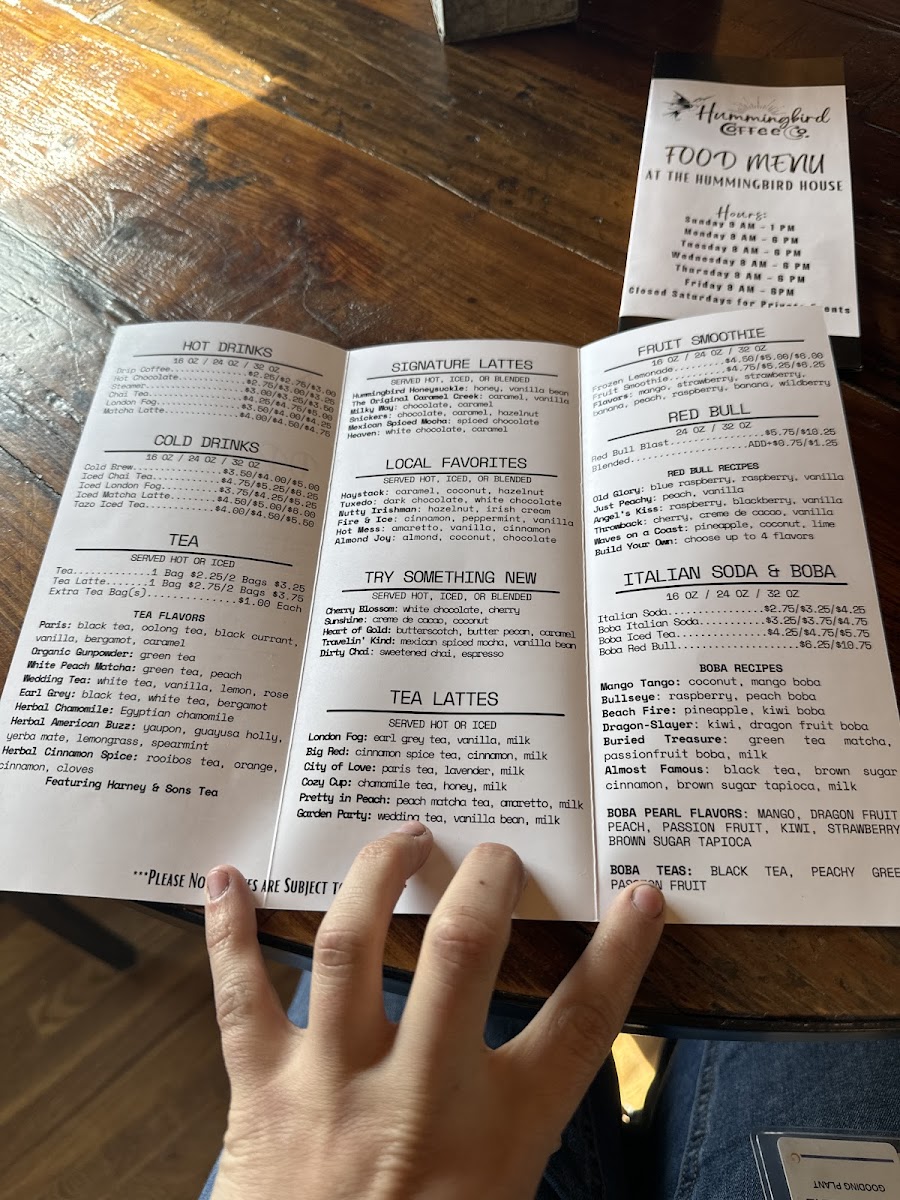 Hummingbird
Coffee Co.
FOOD MENU
AT THE HUMMINGBIRD HOUSE
Hours:
Sunday 9 AM - 1 PM
Monday 8 AM - 6 PM
Tuesday 8 AM - 6 PM
Wednesday 8 AM - 6 PM
Thursday 8 AM - 6 PM
Friday 8 AM - 6PM
Closed Saturdays for Private Events
HOT DRINKS
16 OZ / 24 OZ / 32 OZ
Drip Coffee
Hot Chocolate
Steamer
Chai Tea
London Fog
Matcha Latte
COLD DRINKS
16 OZ / 24 OZ / 32 OZ
Cold Brew....................$3.50/$4.00/$5.00
Iced Chai Tea................$4.75/$5.25/$6.25
Iced London Fog..............$3.75/$4.25/$5.25
Iced Matcha Latte............$4.50/$5.00/$6.00
Tazo Iced Tea................$4.00/$4.50/$5.50
TEA
SERVED HOT OR ICED
Tea...........1 Bag $2.25/2 Bags $3.25
Tea Latte.......1 Bag $2.75/2 Bags $3.75
Extra Tea Bag(s)..............$1.00 Each
TEA FLAVORS
Paris: black tea, oolong tea, black currant,
vanilla, bergamot, caramel
Organic Gunpowder: green tea
White Peach Matcha: green tea, peach
Wedding Tea: white tea, vanilla, lemon, rose
Earl Grey: black tea, white tea, bergamot
Herbal Chamomile: Egyptian chamomile
Herbal American Buzz: yaupon, guayusa holly,
yerba mate, lemongrass, spearmint
Herbal Cinnamon Spice: rooibos tea, orange,
cinnamon, cloves
Featuring Harney & Sons Tea
***PLEASE NO ARE SUBJECT TO
SIGNATURE LATTES
SERVED HOT, ICED, OR BLENDED
Hummingbird Honeysuckle: honey, vanilla bean
The Original Caramel Creek: caramel, vanilla
Milky Way: chocolate, caramel
Snickers: chocolate, caramel, hazelnut
Mexican Spiced Mocha: spiced chocolate
Heaven: white chocolate, caramel
LOCAL FAVORITES
SERVED HOT, ICED, OR BLENDED
Haystack: caramel, coconut, hazelnut
Tuxedo: dark chocolate, white chocolate
Nutty Irishman: hazelnut, irish cream
Fire & Ice: cinnamon, peppermint, vanilla
Hot Mess: amaretto, vanilla, cinnamon
Almond Joy: almond, coconut, chocolate
TRY SOMETHING NEW
SERVED HOT, ICED, OR BLENDED
Cherry Blossom: white chocolate, cherry
Sunshine: creme de cacao, coconut
Heart of Gold: butterscotch, butter pecan, caramel
Travelin' Kind: mexican spiced mocha, vanilla bean
Dirty Chai: sweetened chai, espresso
TEA LATTES
SERVED HOT OR ICED
London Fog: earl grey tea, vanilla, milk
Big Red: cinnamon spice tea, cinnamon, milk
City of Love: paris tea, lavender, milk
Cozy Cup: chamomile tea, honey, milk
Pretty in Peach: peach matcha tea, amaretto, milk
Garden Party: wedding tea, vanilla bean, milk
FRUIT SMOOTHIE
16 OZ / 24 OZ / 32 OZ
Frozen Lemonade.........$4.50/$5.00/$6.00
Fruit Smoothie..........$4.75/$5.25/$6.25
Flavors: mango, strawberry, strawberry,
banana, peach, raspberry, banana, wildberry
RED BULL
24 OZ / 32 OZ
Red Bull Blast..................$5.75/$10.25
Blended.....................ADD+$0.75/$1.25
RED BULL RECIPES
Old Glory: blue raspberry, raspberry, vanilla
Just Peachy: peach, vanilla
Angel's Kiss: raspberry, blackberry, vanilla
Throwback: cherry, creme de cacao, vanilla
Waves on a Coast: pineapple, coconut, lime
Build Your Own: choose up to 4 flavors
ITALIAN SODA & BOBA
16 OZ / 24 OZ / 32 OZ
Italian Soda..............$2.75/$3.25/$4.25
Boba Italian Soda.........$3.25/$3.75/$4.75
Boba Iced Tea.............$4.25/$4.75/$5.75
Boba Red Bull..................$6.25/$10.75
BOBA RECIPES
Mango Tango: coconut, mango boba
Bullseye: raspberry, peach boba
Beach Fire: pineapple, kiwi boba
Dragon-Slayer: kiwi, dragon fruit boba
Buried Treasure: green tea matcha,
passionfruit boba, milk
Almost Famous: black tea, brown sugar
cinnamon, brown sugar tapioca, milk
BOBA PEARL FLAVORS: MANGO, DRAGON FRUIT
PEACH, PASSION FRUIT, KIWI, STRAWBERRY
BROWN SUGAR TAPIOCA
BOBA TEAS: BLACK TEA, PEACHY GREE
PASSION FRUIT
GOODING PLANT